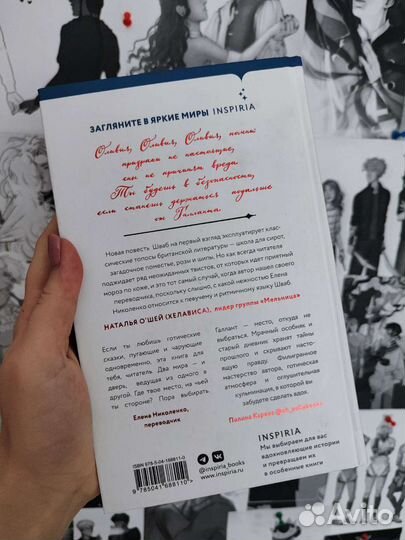 ЗАГЛЯНИТЕ В ЯРКИЕ МИРЫ INSPIRIA
Оливия, Оливия, Оливия, помни:
призраки не настоящие,
сны не причинят вреда.
Ты будешь в безопасности,
если станешь держаться подальше
от Галланта
Новая повесть Шваб на первый взгляд эксплуатирует клас-
сические топосы британской литературы — школа для сирот,
загадочное поместье, розы и шипы. Но как всегда читателя
поджидает ряд неожиданных твистов, от которых идет приятный
мороз по коже, и это тот самый случай, когда автор нашел своего
переводчика, поскольку слышно, с какой нежностью Елена
Николенко относится к певучему и ритмичному языку Шваб.
НАТАЛЬЯ О'ШЕЙ (ХЕЛАВИСА), лидер группы «Мельница»
Если ты любишь готические
сказки, пугающие и чарующие
одновременно, эта книга для
тебя, читатель. Два мира — и
дверь, ведущая из одного в
другой. Где твое место, на чьей
ты стороне? Пора выбирать.
Елена Николенко,
переводчик
Галлант — место, откуда не
выбраться. Мрачный особняк и
старый дневник хранят тайны
прошлого и скрывают насто-
ящую правду. Филигранное
мастерство автора, готическая
атмосфера и оглушительная
кульминация, в которой вы
забудете сделать вдох.
Полина
INSPIRIA
Мы выбираем для вас
вдохновляющие истории
и превращаем их
в особенные книги
ISBN 978-5-04-168811-0
9 785041 688110 >
@inspiria_books
www.inspiria.ru
Avito